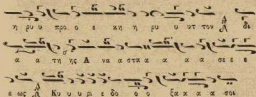 η ρυ υ προ ο ε κη η ρυ υτ τον δε
α α τη ης Α να α στα κα α α α σε ε ε
ε ως Α Κυ υ υ ρι ε δο ο ο ξα κα α σοι